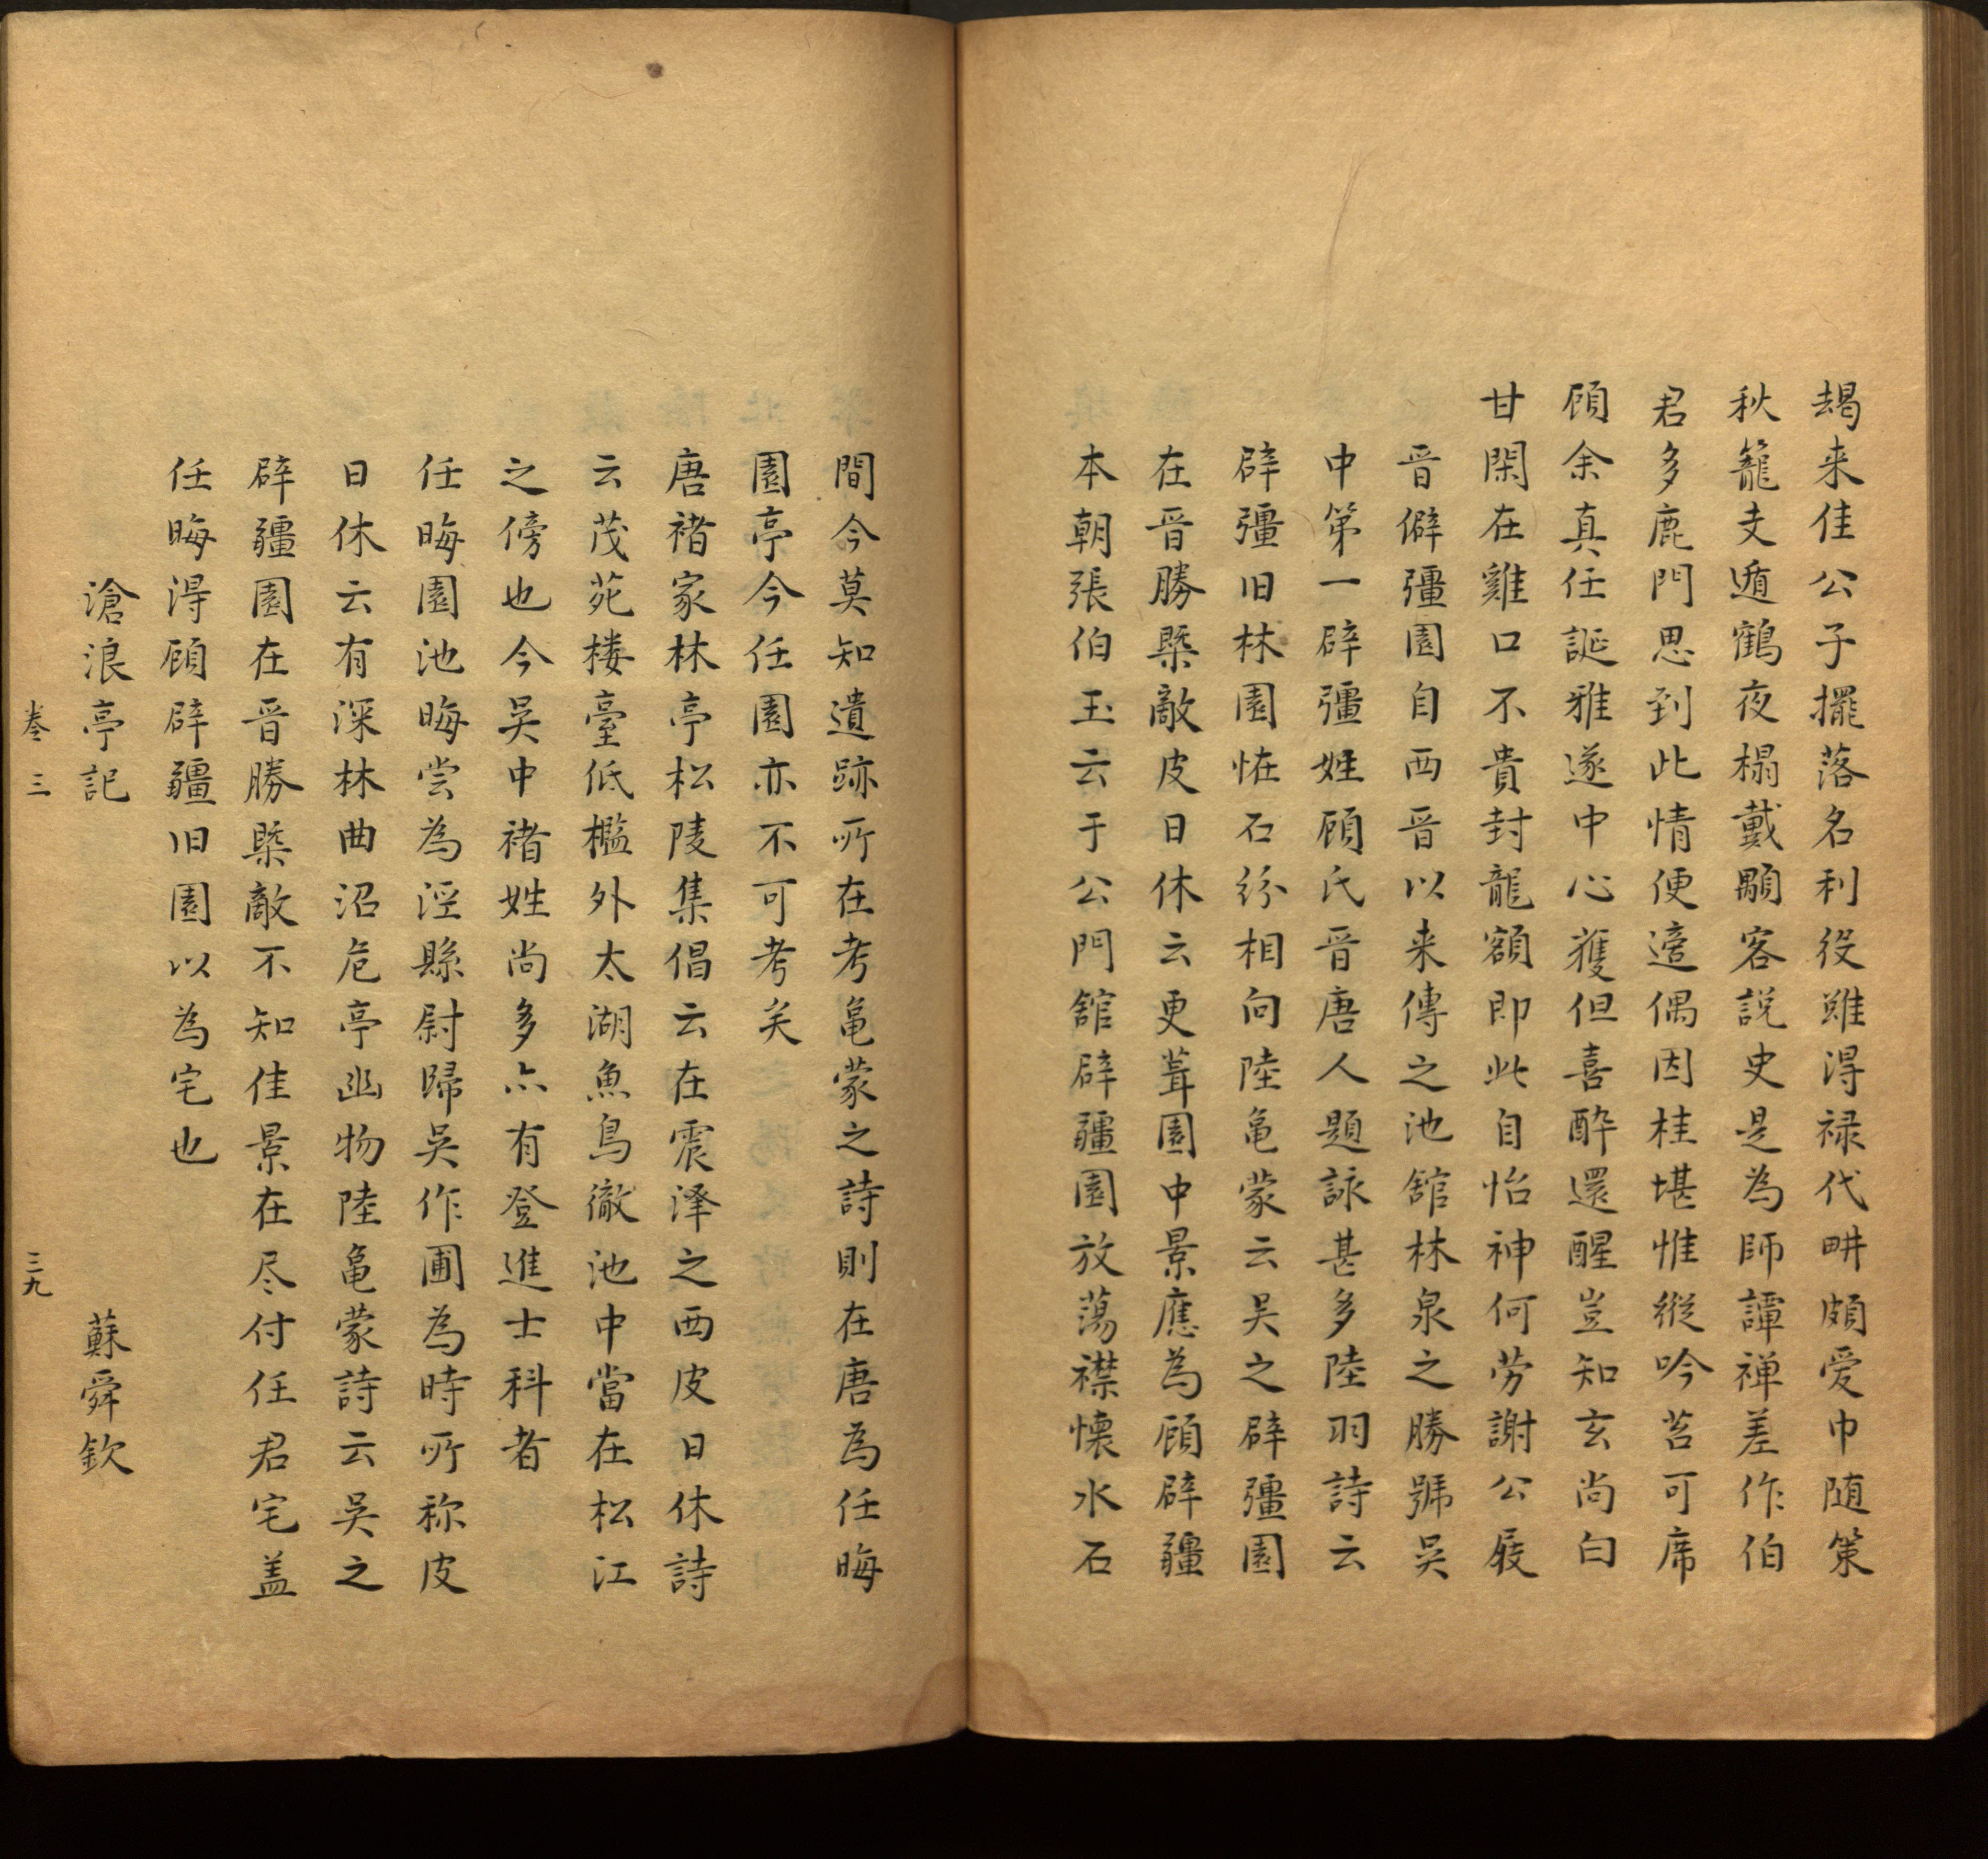 朅来佳公子擺落名利役雖淂禄代畊頗爱巾随策
秋籠支遁鶴夜榻戴顒客説史是為師譚禅差作伯
君多鹿門思到此情便適偶因桂堪惟縱吟苔可席
顧余真任誕雅遂中心獲但喜酔還醒豈知玄尚白
甘閑在雞口不貴封龍額即此自怡神何劳謝公屐
晋僻彊園自西晋以来傳之池舘林泉之勝號吴
中第一辟彊姓顧氏晋唐人題詠甚多陸羽詩云
辟彊旧林園恠石紛相向陸亀蒙云吴之辟彊園
在晋勝槩敵皮日休云更葺園中景應為顧辟疆
本朝張伯玉云于公門舘辟疆園放蕩襟懐水石
間今莫知遺跡所在考亀蒙之詩則在唐為任晦
園亭今任園亦不可考矣
唐褚家林亭松陵集倡云在震泽之西皮日休詩
云茂苑楼臺低檻外太湖魚鳥徹池中當在松江
之傍也今吴中褚姓尚多亦有登進士科者
任晦園池晦尝為涇縣尉歸吴作圃為時所称皮
日休云有深林曲沼危亭幽物陸亀蒙詩云吴之
辟疆園在晋勝槩敵不知佳景在尽付任君宅盖
任晦淂顧辟疆旧園以為宅也
滄浪亭記 蘇舜欽
卷三 三九